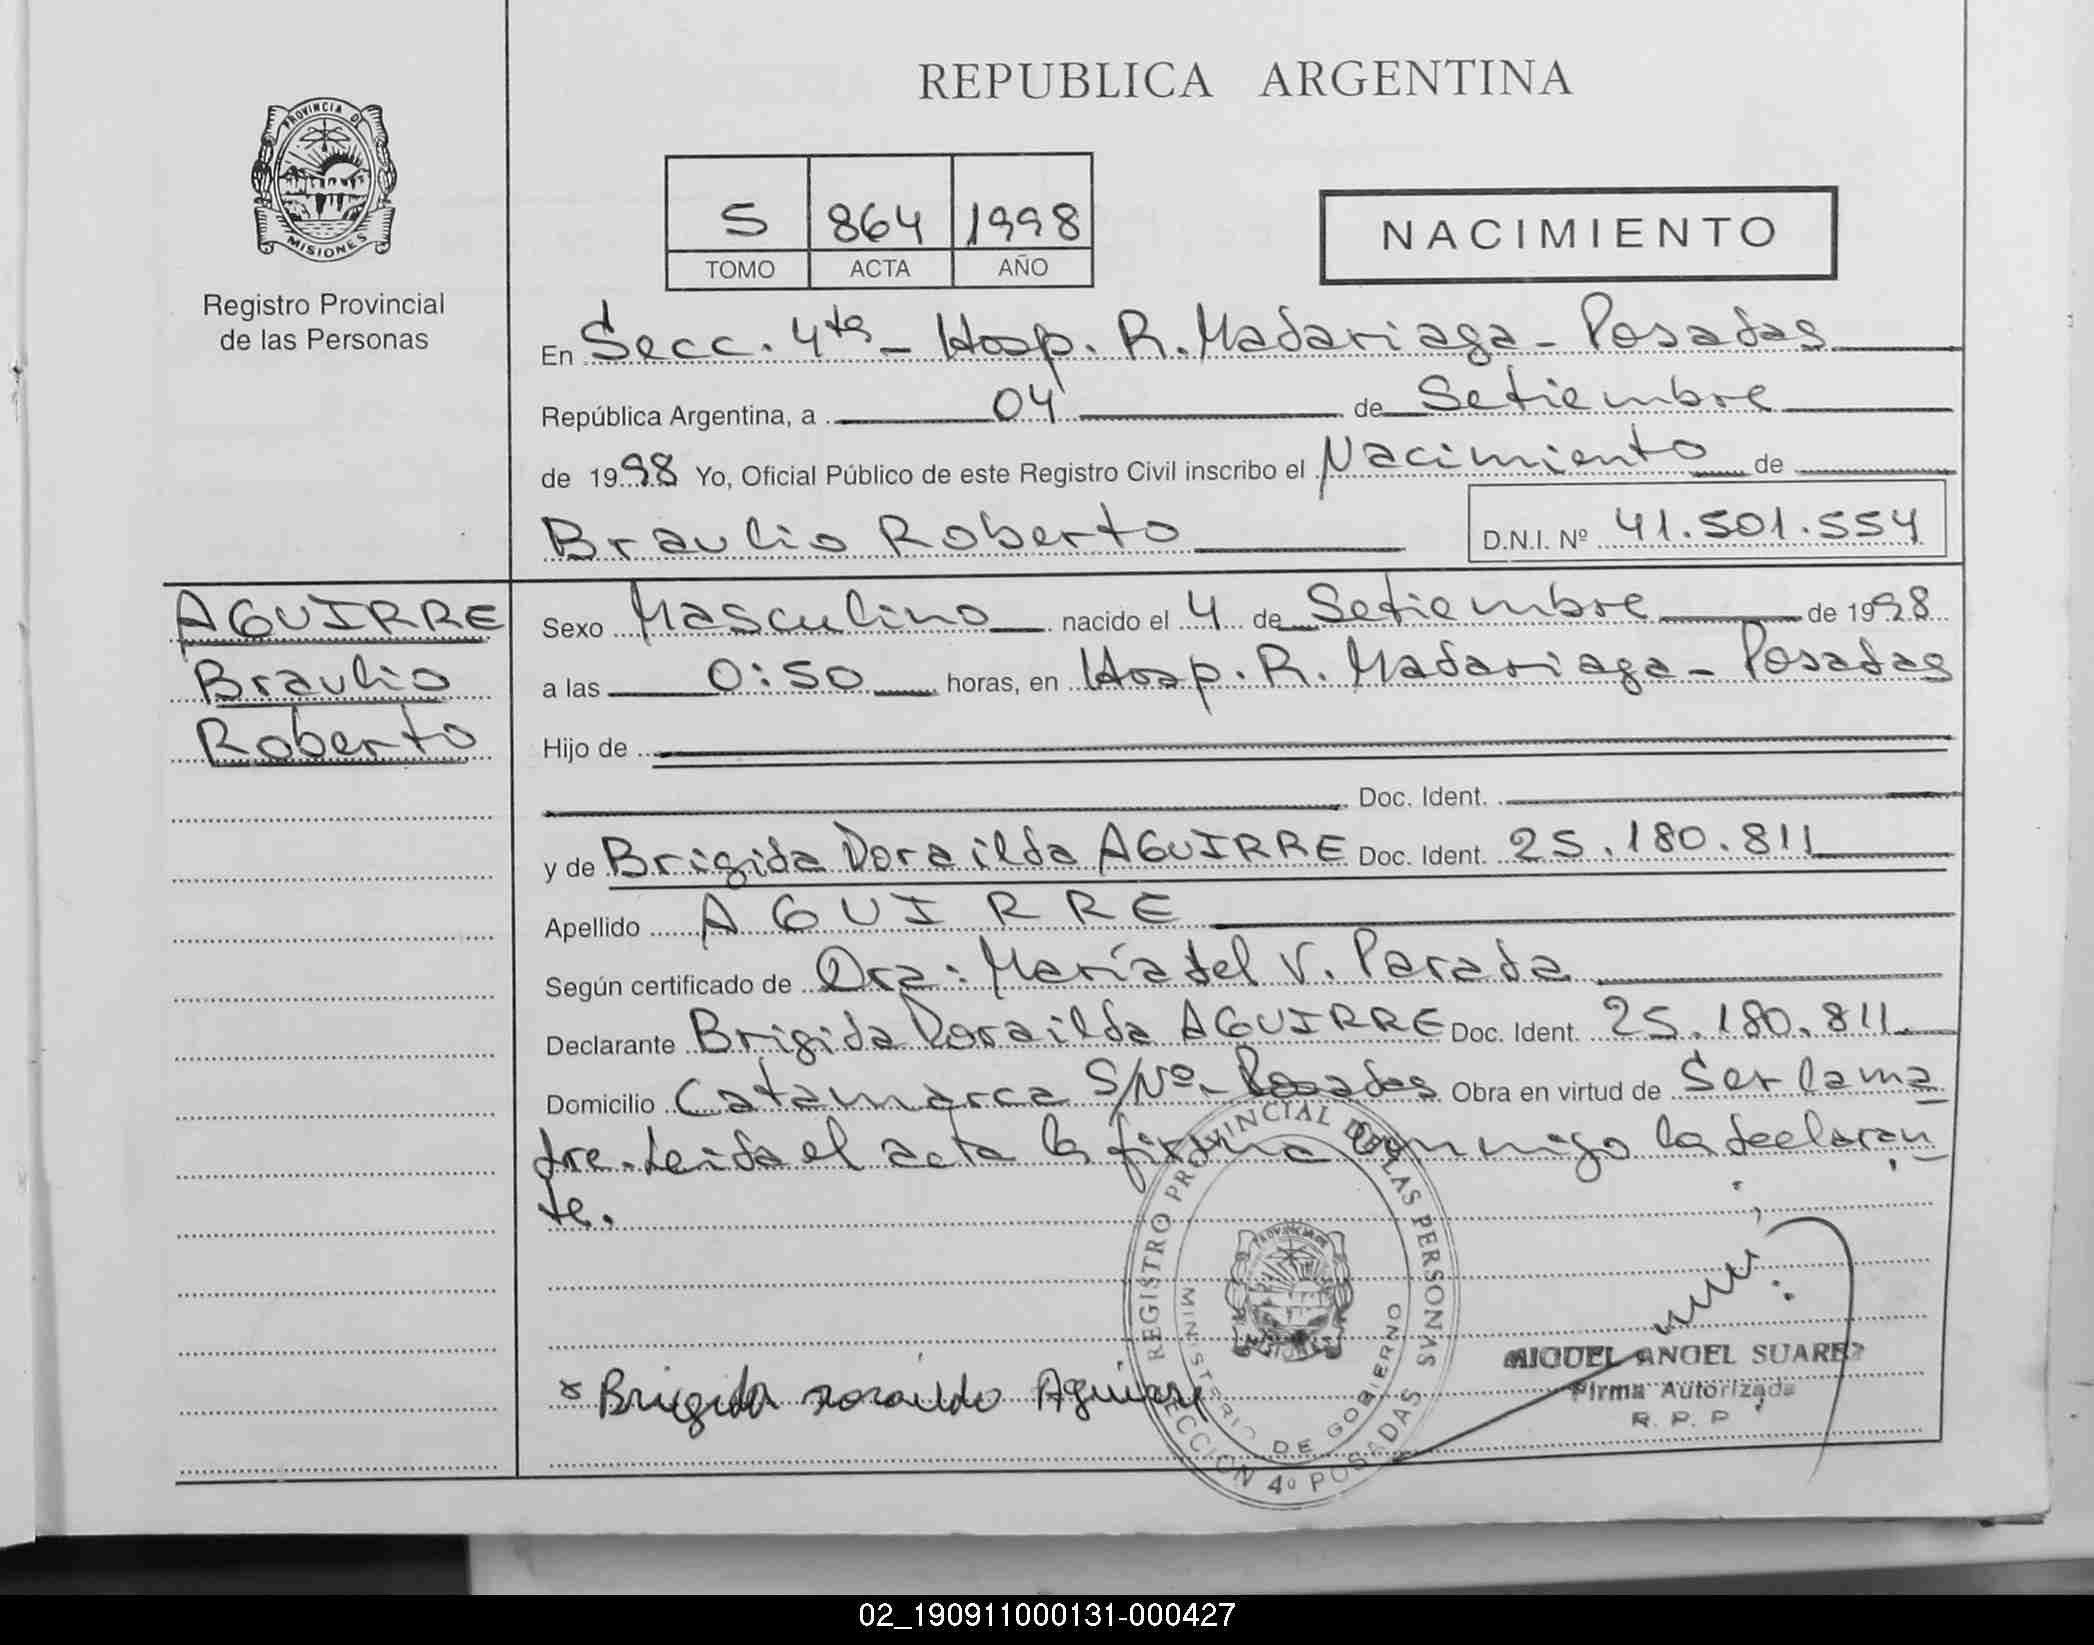 REPUBLICA ARGENTINA
PROVINCIA DE
MISIONES
Registro Provincial
de las Personas
5 864 1998
TOMO ACTA AÑO
NACIMIENTO
En Secc. 4ta - Hosp. R. Madariaga - Posadas
República Argentina, a 04 de Setiembre
de 1998 Yo, Oficial Público de este Registro Civil inscribo el Nacimiento de
Braulio Roberto D.N.I. Nº 41.501.554
AGUIRRE
Braulio
Roberto
Sexo Masculino nacido el 4 de Setiembre de 1998
a las 0:50 horas, en Hosp. R. Madariaga - Posadas
Hijo de
Doc. Ident.
y de Brigida Dorailda AGUIRRE Doc. Ident. 25.180.811
Apellido AGUIRRE
Según certificado de Dra: María del V. Parada
Declarante Brigida Dorailda AGUIRRE Doc. Ident. 25.180.811
Domicilio Catamarca S/Nº - Posadas Obra en virtud de Ser la ma
dre. Leida el acta la firma conmigo la declaran
te.
REGISTRO PROVINCIAL DE LAS PERSONAS
MINISTERIO DE GOBIERNO
SECCION 4º POSADAS
x Brigida Dorailda Aguirre
MIGUEL ANGEL SUAREZ
Firma Autorizada
R. P. P.
02_190911000131-000427